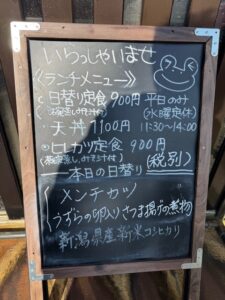 いらっしゃいませ
《ランチメニュー》
・日替り定食 900円 平日のみ
(茶碗蒸し、みそ汁付) (水曜定休)
・天丼 1100円 11:30~14:00
・ヒレカツ定食 900円
(茶碗蒸し、みそ汁付) (税別)
本日の日替り
メンチカツ
(うずらの卵入りさつま揚げの煮物)
新潟県産新米コシヒカリ